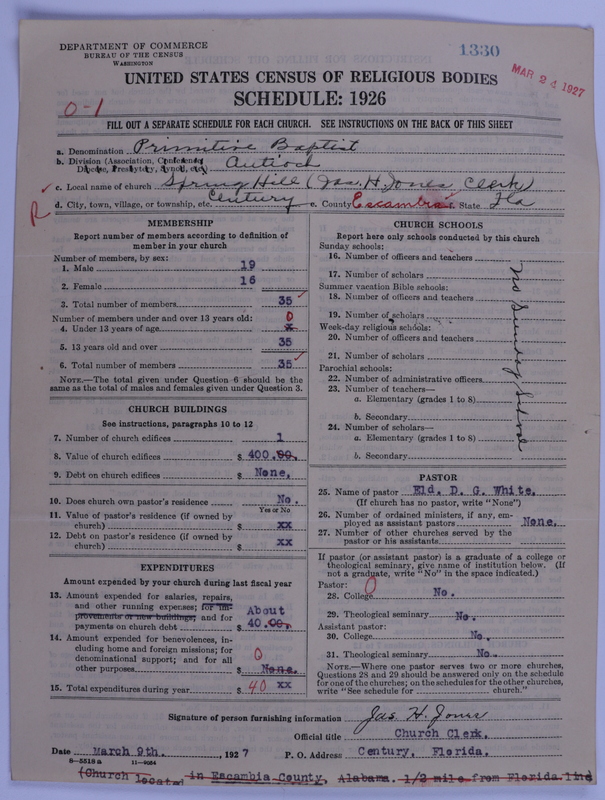 DEPARTMENT OF COMMERCE
BUREAU OF THE CENSUS
WASHINGTON
1330
MAR 24 1927
UNITED STATES CENSUS OF RELIGIOUS BODIES
SCHEDULE: 1926
0-1
FILL OUT A SEPARATE SCHEDULE FOR EACH CHURCH. SEE INSTRUCTIONS ON THE BACK OF THIS SHEET
a. Denomination Primitive Baptist
b. Division (Association, Conference, Diocese, Presbytery, Synod, etc.) Antioch
c. Local name of church Spring Hill (Jas. H. Jones, Clerk)
d. City, town, village, or township, etc. Century e. County Escambia f. State Fla
R
MEMBERSHIP
Report number of members according to definition of
member in your church
Number of members, by sex:
1. Male 19
2. Female 16
3. Total number of members 35
Number of members under and over 13 years old:
4. Under 13 years of age x 0
5. 13 years old and over 35
6. Total number of members 35
NOTE.—The total given under Question 6 should be the
same as the total of males and females given under Question 3.
CHURCH BUILDINGS
See instructions, paragraphs 10 to 12
7. Number of church edifices 1
8. Value of church edifices $ 400.00.
9. Debt on church edifices $ None.
10. Does church own pastor's residence No.
Yes or No
11. Value of pastor's residence (if owned by
church) $ xx
12. Debt on pastor's residence (if owned by
church) $ xx
EXPENDITURES
Amount expended by your church during last fiscal year
13. Amount expended for salaries, repairs,
and other running expenses; for im-
provements or new buildings; and for
payments on church debt $ About 40.00.
14. Amount expended for benevolences, in-
cluding home and foreign missions; for
denominational support; and for all
other purposes $ None. 0
15. Total expenditures during year $ 40 xx
CHURCH SCHOOLS
Report here only schools conducted by this church
Sunday schools:
16. Number of officers and teachers
17. Number of scholars
Summer vacation Bible schools:
18. Number of officers and teachers
19. Number of scholars
Week-day religious schools:
20. Number of officers and teachers
21. Number of scholars
Parochial schools:
22. Number of administrative officers
23. Number of teachers—
a. Elementary (grades 1 to 8)
b. Secondary
24. Number of scholars—
a. Elementary (grades 1 to 8)
b. Secondary
No Sunday School
PASTOR
25. Name of pastor Eld. D. G. White.
(If church has no pastor, write "None")
26. Number of ordained ministers, if any, em-
ployed as assistant pastors None.
27. Number of other churches served by the
pastor or his assistants
If pastor (or assistant pastor) is a graduate of a college or
theological seminary, give name of institution below. (If
not a graduate, write "No" in the space indicated.)
Pastor:
28. College 0 No.
29. Theological seminary No.
Assistant pastor:
30. College No.
31. Theological seminary No.
NOTE.—Where one pastor serves two or more churches,
Questions 28 and 29 should be answered only on the schedule
for one of the churches; on the schedules for the other churches,
write "See schedule for church."
Signature of person furnishing information Jas H. Jones
Official title Church Clerk.
Date March 9th. , 1927 P. O. Address Century, Florida.
8—5518 a 11—9054
(Church located in Escambia County, Alabama. 1/2 mile from Florida line